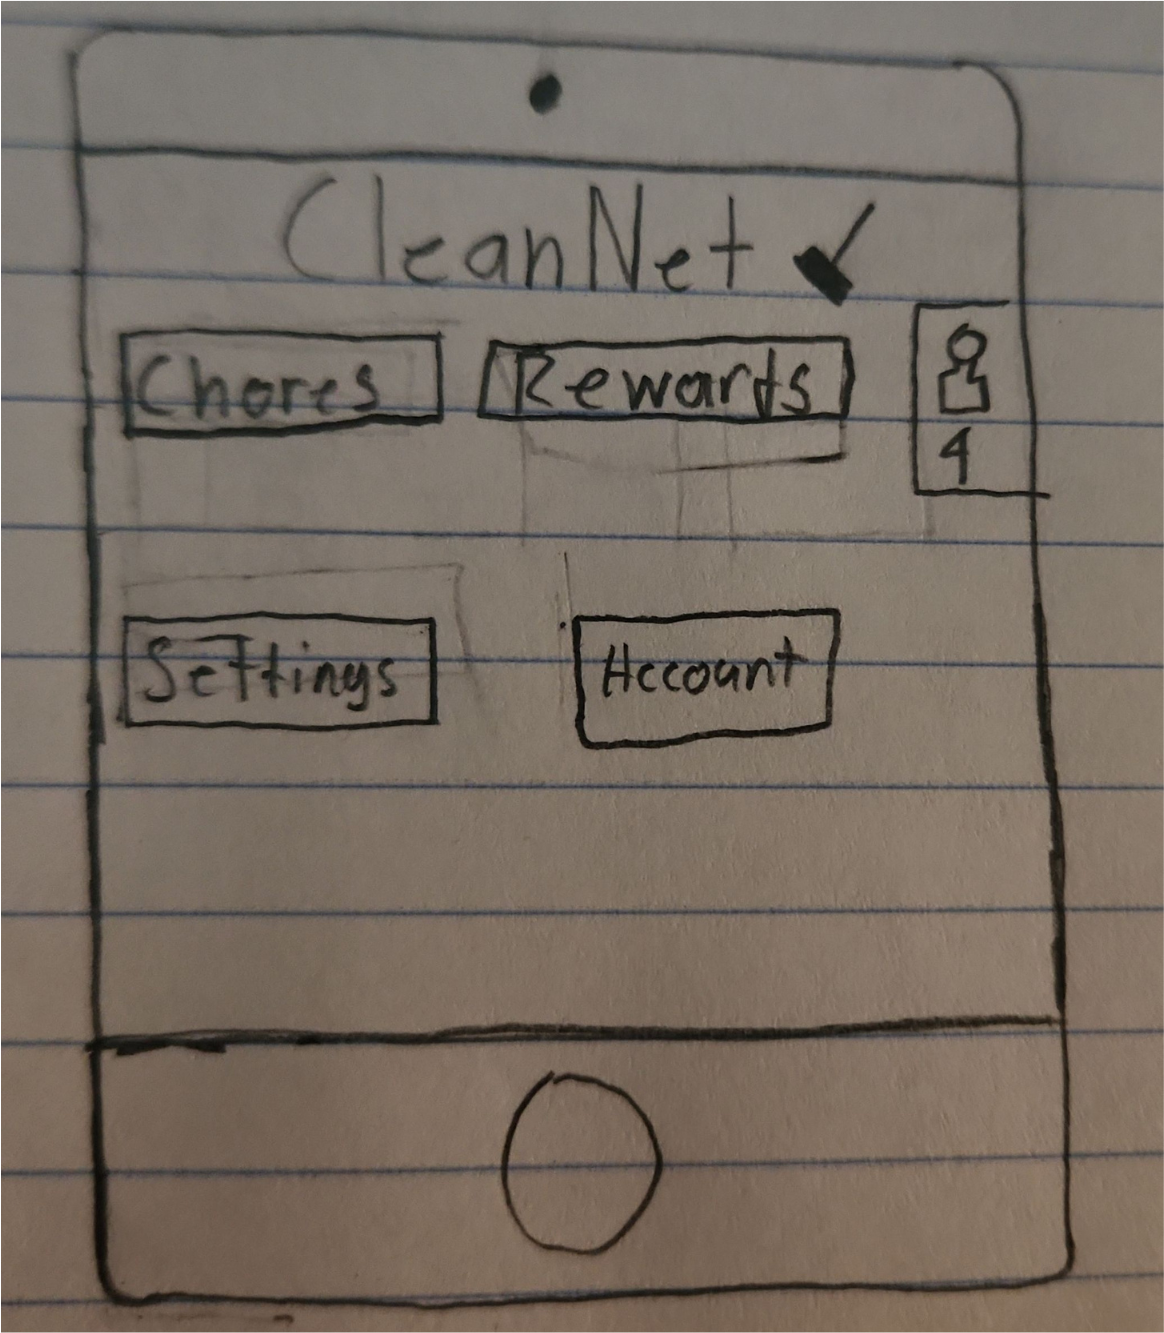 CleanNet
Chores Rewards
4
Settings Account